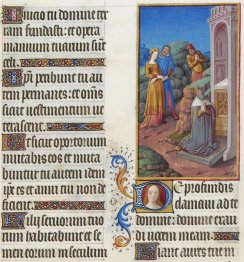 Inicio tu domine ter
ram fundasti: et opera
manuum tuarum sunt
celi.
Ipi peribunt tu au
tem permanes: et omis
sicut vestimentum ve
terascent.
Et sicut opertorium
mutabis eos et muta
buntur tu autem idem
ipse es et anni tui non
deficient.
Filii servorum tuo
rum habitabunt et se
men eorum in seculum
De profundis
clamavi ad te
domine: domine exau
di vocem meam.
Fiant aures tue in